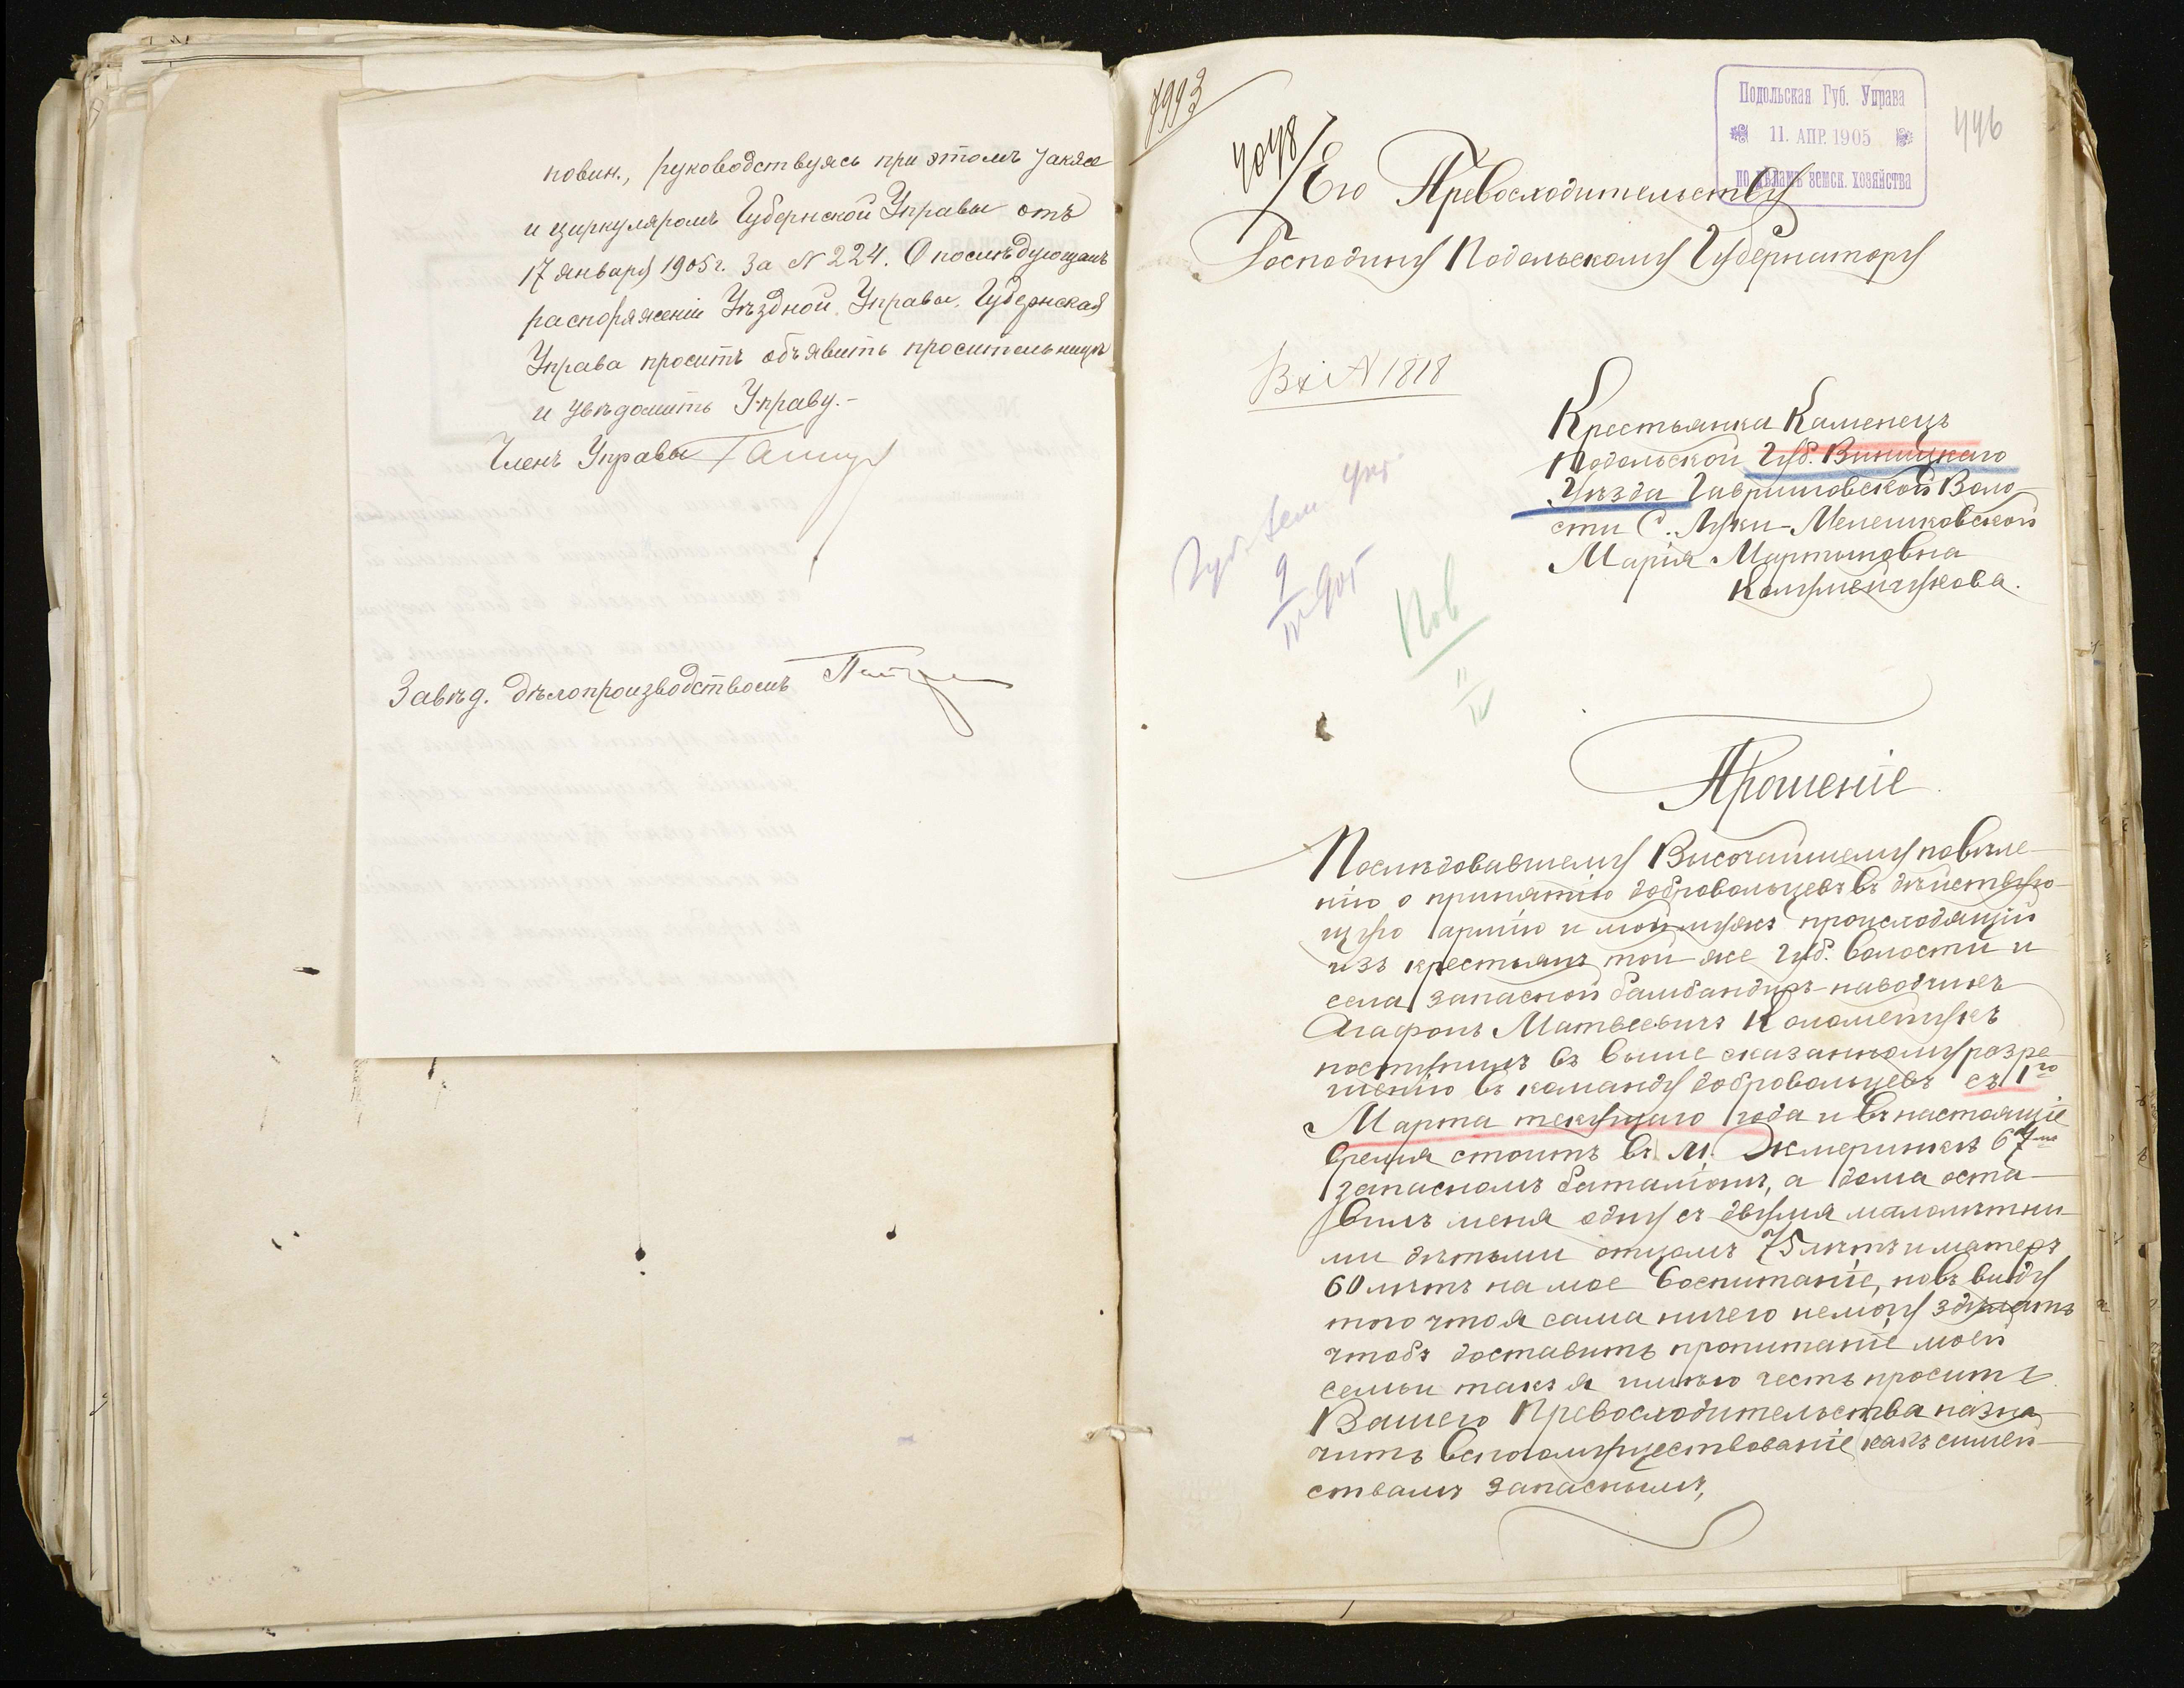 повин., руководствуясь при этомъ также
и циркуляромъ Губернской Управы отъ
17 января 1905 г. за № 224. О послѣдующемъ
распоряженіи Уѣздной Управы, Губернская
Управа проситъ объявить просительницѣ
и увѣдомить Управу.-
Членъ Управы
Завѣд. дѣлопроизводствомъ
7993
4048
Подольская Губ. Управа
11. АПР. 1905
по дѣламъ земск. хозяйства
446
Его Превосходительству
Господину Подольскому Губернатору
Вх № 1818
Крестьянка Каменецъ
Подольской Губ. Виницкаго
Уѣзда Гавришовской Воло-
сти С. Луки-Мелешковской
Марія Мартыновна
Коломейчукова.
Губ. Зем Упр
9/IV 905
Пов
11/IV
Прошеніе.
Послѣдовавшему Височайшему повѣле-
нію о принятію добровольцевъ въ дѣйствую-
щую армію и мой мужъ происходящій
изъ крестьянъ той же Губ. Волости и
села запасной бамбандиръ-наводчикъ
Агафонъ Матвѣевичъ Коломейчукъ
поступилъ въ выше сказанному розре-
шенію въ команду добровольцевъ съ 1го
Марта текущаго года и въ настоящіе
время стоитъ въ М. Жмеринкѣ 67мъ
запасномъ баталіонѣ, а дома оста-
вилъ меня одну съ двумя малолѣтни-
ми дѣтьми отцомъ 75 лѣтъ и матеръ
60 лѣтъ на мое воспитаніе, новъ виду
того что я сама ничего немогу здѣлать
чтобъ доставить пропитаніе моей
семьи такъ я имѣю честь проситъ
Вашего Превосходительства назна-
чить вспомуществованіе какъ симей-
ствамъ запаснымъ,